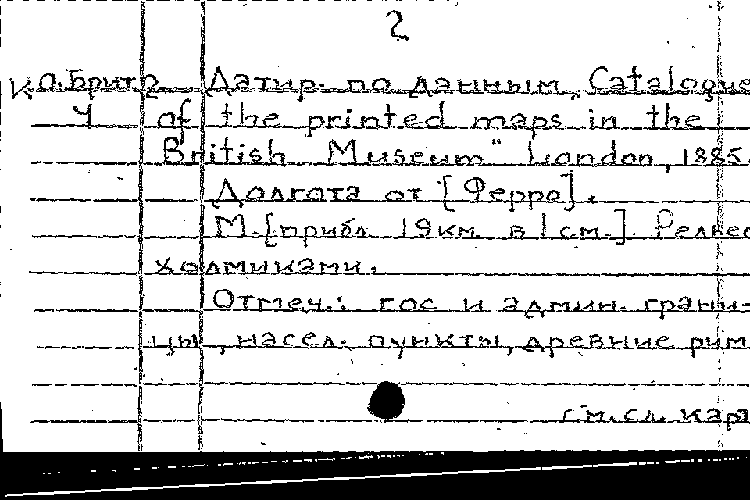 2
К.О.Брит.2 Датир. по данным „Catalogue
4 of the printed maps in the
British Museum" London, 1885.
Долгота от [Ферро].
М.[прибл. 19км. в 1см.] Рельеф
холмиками.
Отмеч.: гос и админ. грани-
цы, насел. пункты, древние рим
см. сл. карт